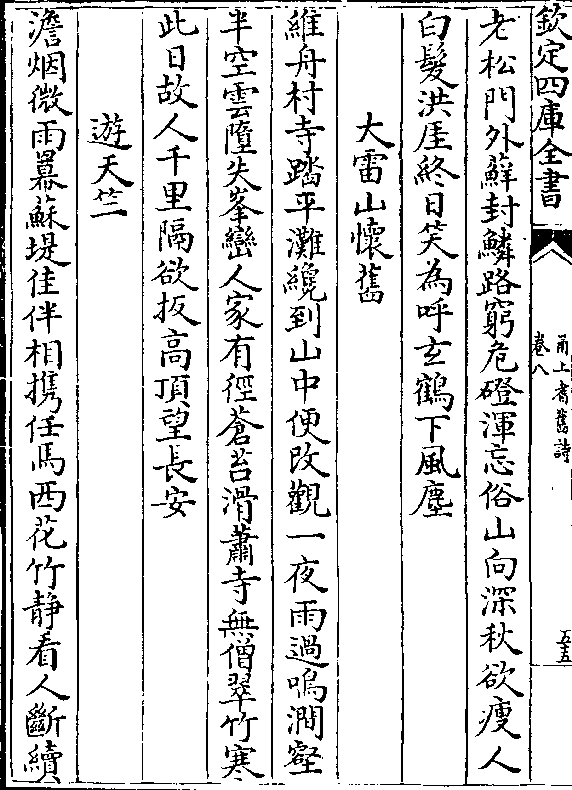 欽定四庫全書
甬上耆舊詩
卷八
五五
老松門外蘚封鱗路窮危磴渾忘俗山向深秋欲瘦人
白髮洪厓終日笑為呼玄鶴下風塵
大雷山懷舊
維舟村寺踏平灘纔到山中便改觀一夜雨過鳴澗壑
半空雲墮失峯巒人家有徑蒼苔滑蕭寺無僧翠竹寒
此日故人千里隔欲扳高頂望長安
遊天竺
澹烟微雨羃蘇堤佳伴相携任馬西花竹静看人斷續